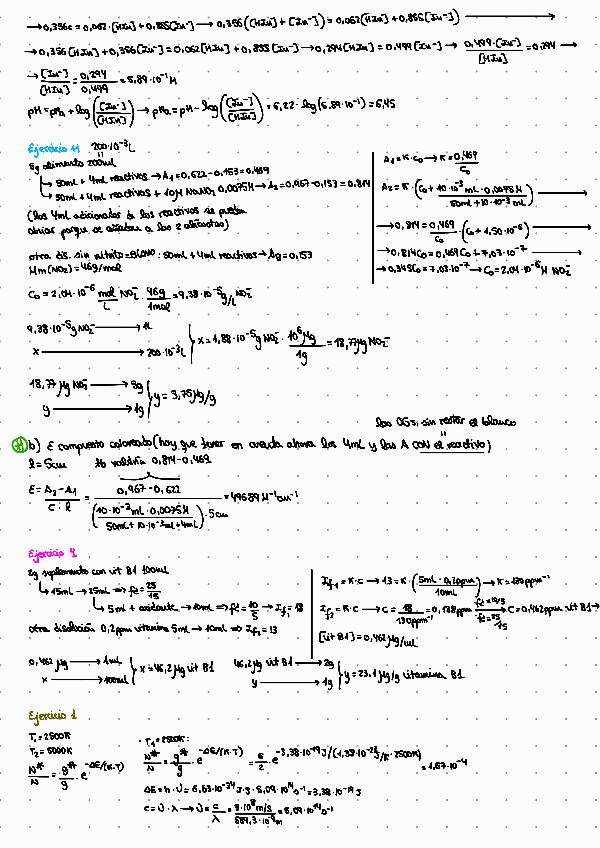 →0,356c = 0,062·[HIn] + 0,855[In⁻] → 0,356([HIn] + [In⁻]) = 0,062[HIn] + 0,855[In⁻] →
→0,356[HIn] + 0,356[In⁻] = 0,062[HIn] + 0,855[In⁻] → 0,294[HIn] = 0,499[In⁻] → 0,499·[In⁻]/[HIn] = 0,294 →
→ [In⁻]/[HIn] = 0,294/0,499 = 5,89·10⁻¹ M
pH = pKa + log([In⁻]/[HIn]) → pKa = pH - log([In⁻]/[HIn]) = 6,22 - log(5,89·10⁻¹) = 6,45
Ejercicio 11
200·10⁻³L
5g alimento 200ml
50ml + 4ml reactivos → A₁ = 0,622 - 0,153 = 0,469
50ml + 4ml reactivos + 10μl NaNO₂ 0,0075M → A₂ = 0,967 - 0,153 = 0,814
(los 4ml adicionados de los reactivos se pueden
obviar porque se añaden a las 2 alícuotas)
otra dis. sin nitrito = BLANCO: 50ml + 4ml reactivos → A_B = 0,153
Mm(NO₂) = 46g/mol
A₁ = K·C₀ → K = 0,469/C₀
A₂ = K·(C₀ + 10·10⁻³mL·0,0075M/50ml + 10·10⁻³mL) →
→ 0,814 = 0,469/C₀ · (C₀ + 1,50·10⁻⁶) →
→ 0,814C₀ = 0,469C₀ + 7,03·10⁻⁷ →
→ 0,345C₀ = 7,03·10⁻⁷ → C₀ = 2,04·10⁻⁶ M NO₂⁻
C₀ = 2,04·10⁻⁶ mol/L NO₂⁻ · 46g/1mol = 9,38·10⁻⁵ g/L NO₂⁻
9,38·10⁻⁵g NO₂⁻ → 1L
x → 200·10⁻³L
x = 1,88·10⁻⁵g NO₂⁻ · 10⁶μg/1g = 18,77μg NO₂⁻
18,77 μg NO₂⁻ → 5g
y → 1g
y = 3,75μg/g
los OGs, sin restar el blanco
11 b) E compuesto coloreado (hay que tener en cuenta ahora los 4ml y las A CON el reactivo)
l = 5cm tb valdría 0,814 - 0,469
E = A₂ - A₁/C·l = 0,967 - 0,622/(10·10⁻³mL·0,0075M/50ml + 10·10⁻³ml + 4ml)·5cm = 49689 M⁻¹cm⁻¹
Ejercicio 4
2g suplemento con vit B1 100ml
15ml → 25ml ⇒ fd = 25/15
5ml + oxidante → 10ml ⇒ fd = 10/5 → If₁ = 18
otra disolución 0,2ppm vitamina 5ml → 10ml ⇒ If₂ = 13
If₁ = K·C → 13 = K·(5ml·0,2ppm/10ml) → K = 130ppm⁻¹
If₂ = K·C → C = 18/130ppm⁻¹ = 0,138ppm → fd = 10/5 fd = 25/15 C = 0,462ppm vit B1 →
[Vit B1] = 0,462μg/ml
0,462 μg → 1ml
x → 100ml
x = 46,2μg vit B1
46,2μg vit B1 → 2g
y → 1g
y = 23,1μg/g vitamina B1
Ejercicio 1
T₁ = 2500K
T₂ = 5000K
N*/N = g*/g · e^(-ΔE/(K·T))
· T₁ = 2500K:
N*/N = g*/g · e^(-ΔE/(K·T)) = 6/2 · e^(-3,38·10⁻¹⁹J/(1,38·10⁻²³J/K·2500K)) = 1,67·10⁻⁴
ΔE = h·ν = 6,63·10⁻³⁴J·s · 5,09·10¹⁴s⁻¹ = 3,38·10⁻¹⁹J
c = ν·λ → ν = c/λ = 3·10⁸m/s/589,3·10⁻⁹m = 5,09·10¹⁴s⁻¹